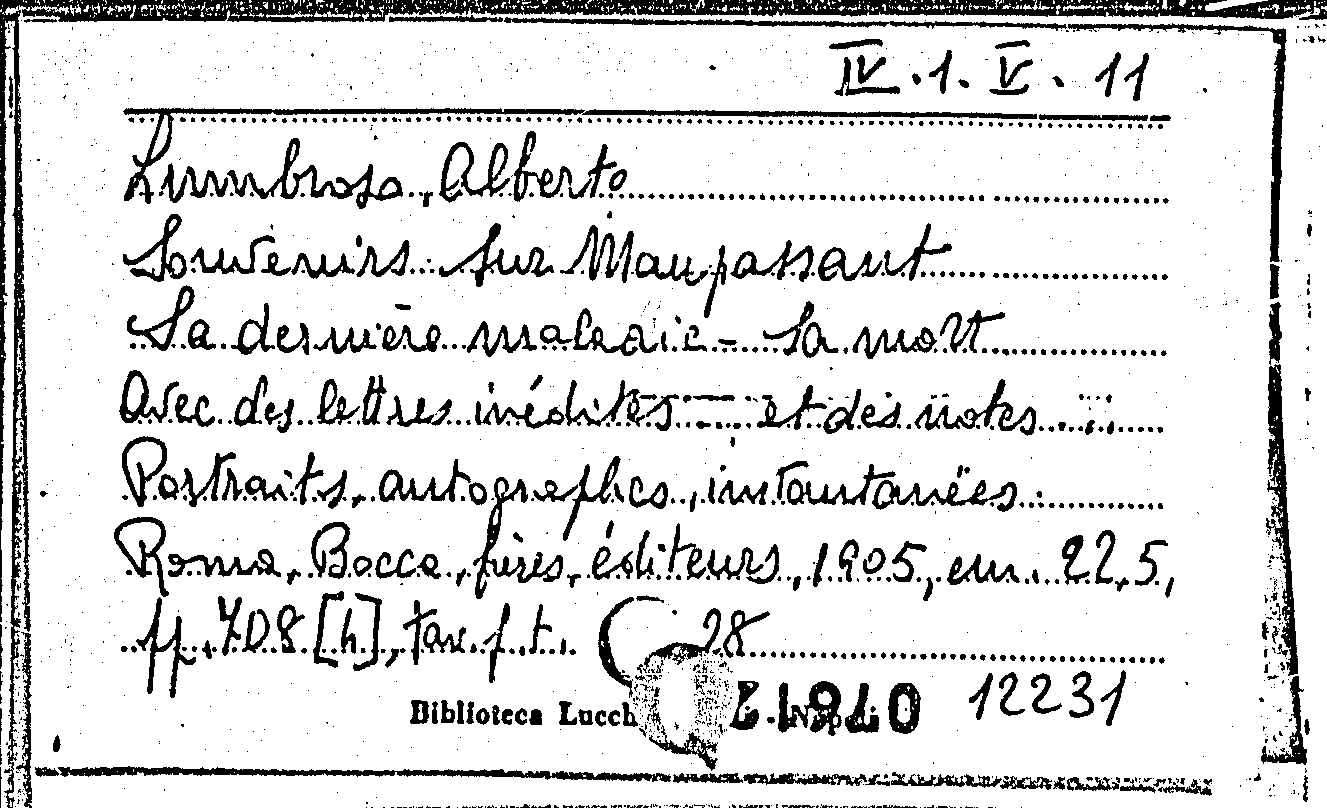 IV.1.V.11
Lumbroso, Alberto
Souvenirs sur Maupassant
Sa dernière maladie - Sa mort
Avec des lettres inédites — et des notes
Portraits, autographes, instantanées.
Roma, Bocca, frères, éditeurs, 1905, cm. 22,5,
pp. 708 [4], tav. f. t. 28
Biblioteca Lucch - Napoli 12231